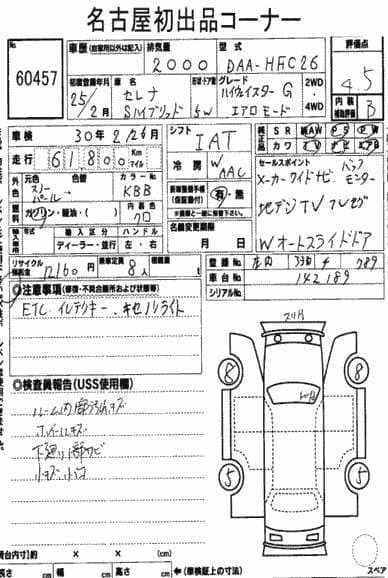 名古屋初出品コーナー
60457
車歴 (自家用以外は記入)
排気量
2000
型式
DAA-HFC26
評価点
4.5
初度登録年月
25/2月
車名
セレナ
Sハイブリッド
ドア・形状
5W
グレード
ハイウェイスターG
エアロモード
2WD
4WD
内装
補助評価
B
車検
30年2/26日
シフト
IAT
純正品
SR
AW
PS
PW
カワ
TV
ナビ
エアB
走行
61800
Km
マイル
冷房
W
AAC
セールスポイント
メーカーナビ バックモニター
地デジTV フルセグ
Wオートスライドドア
外色
元色
色替
カラーNo
スノーパール
KBB
新車整備手帳
(保証書)
有・無
※車両と一緒に保管
燃料
ガソリン・軽油・( )
内装色
クロ
輸入車
輸入区分
ハンドル
ディーラー・並行
左・右
名義変更期限
月 日
リサイクル預託金
12160円
乗車定員
8人
登録No
車台No
142189
シリアルNo
◎注意事項 (修復・不具合箇所および状態等)
ETC インテキー キセノンライト
スリ月
◎検査員報告(USS使用欄)
ルーム内
ホイールキズ
下廻り
8
8
5
5
スペア
(荷台内寸)約
×
×
cm
長さ
cm
幅
cm
高さ
cm
(車検証上の寸法)